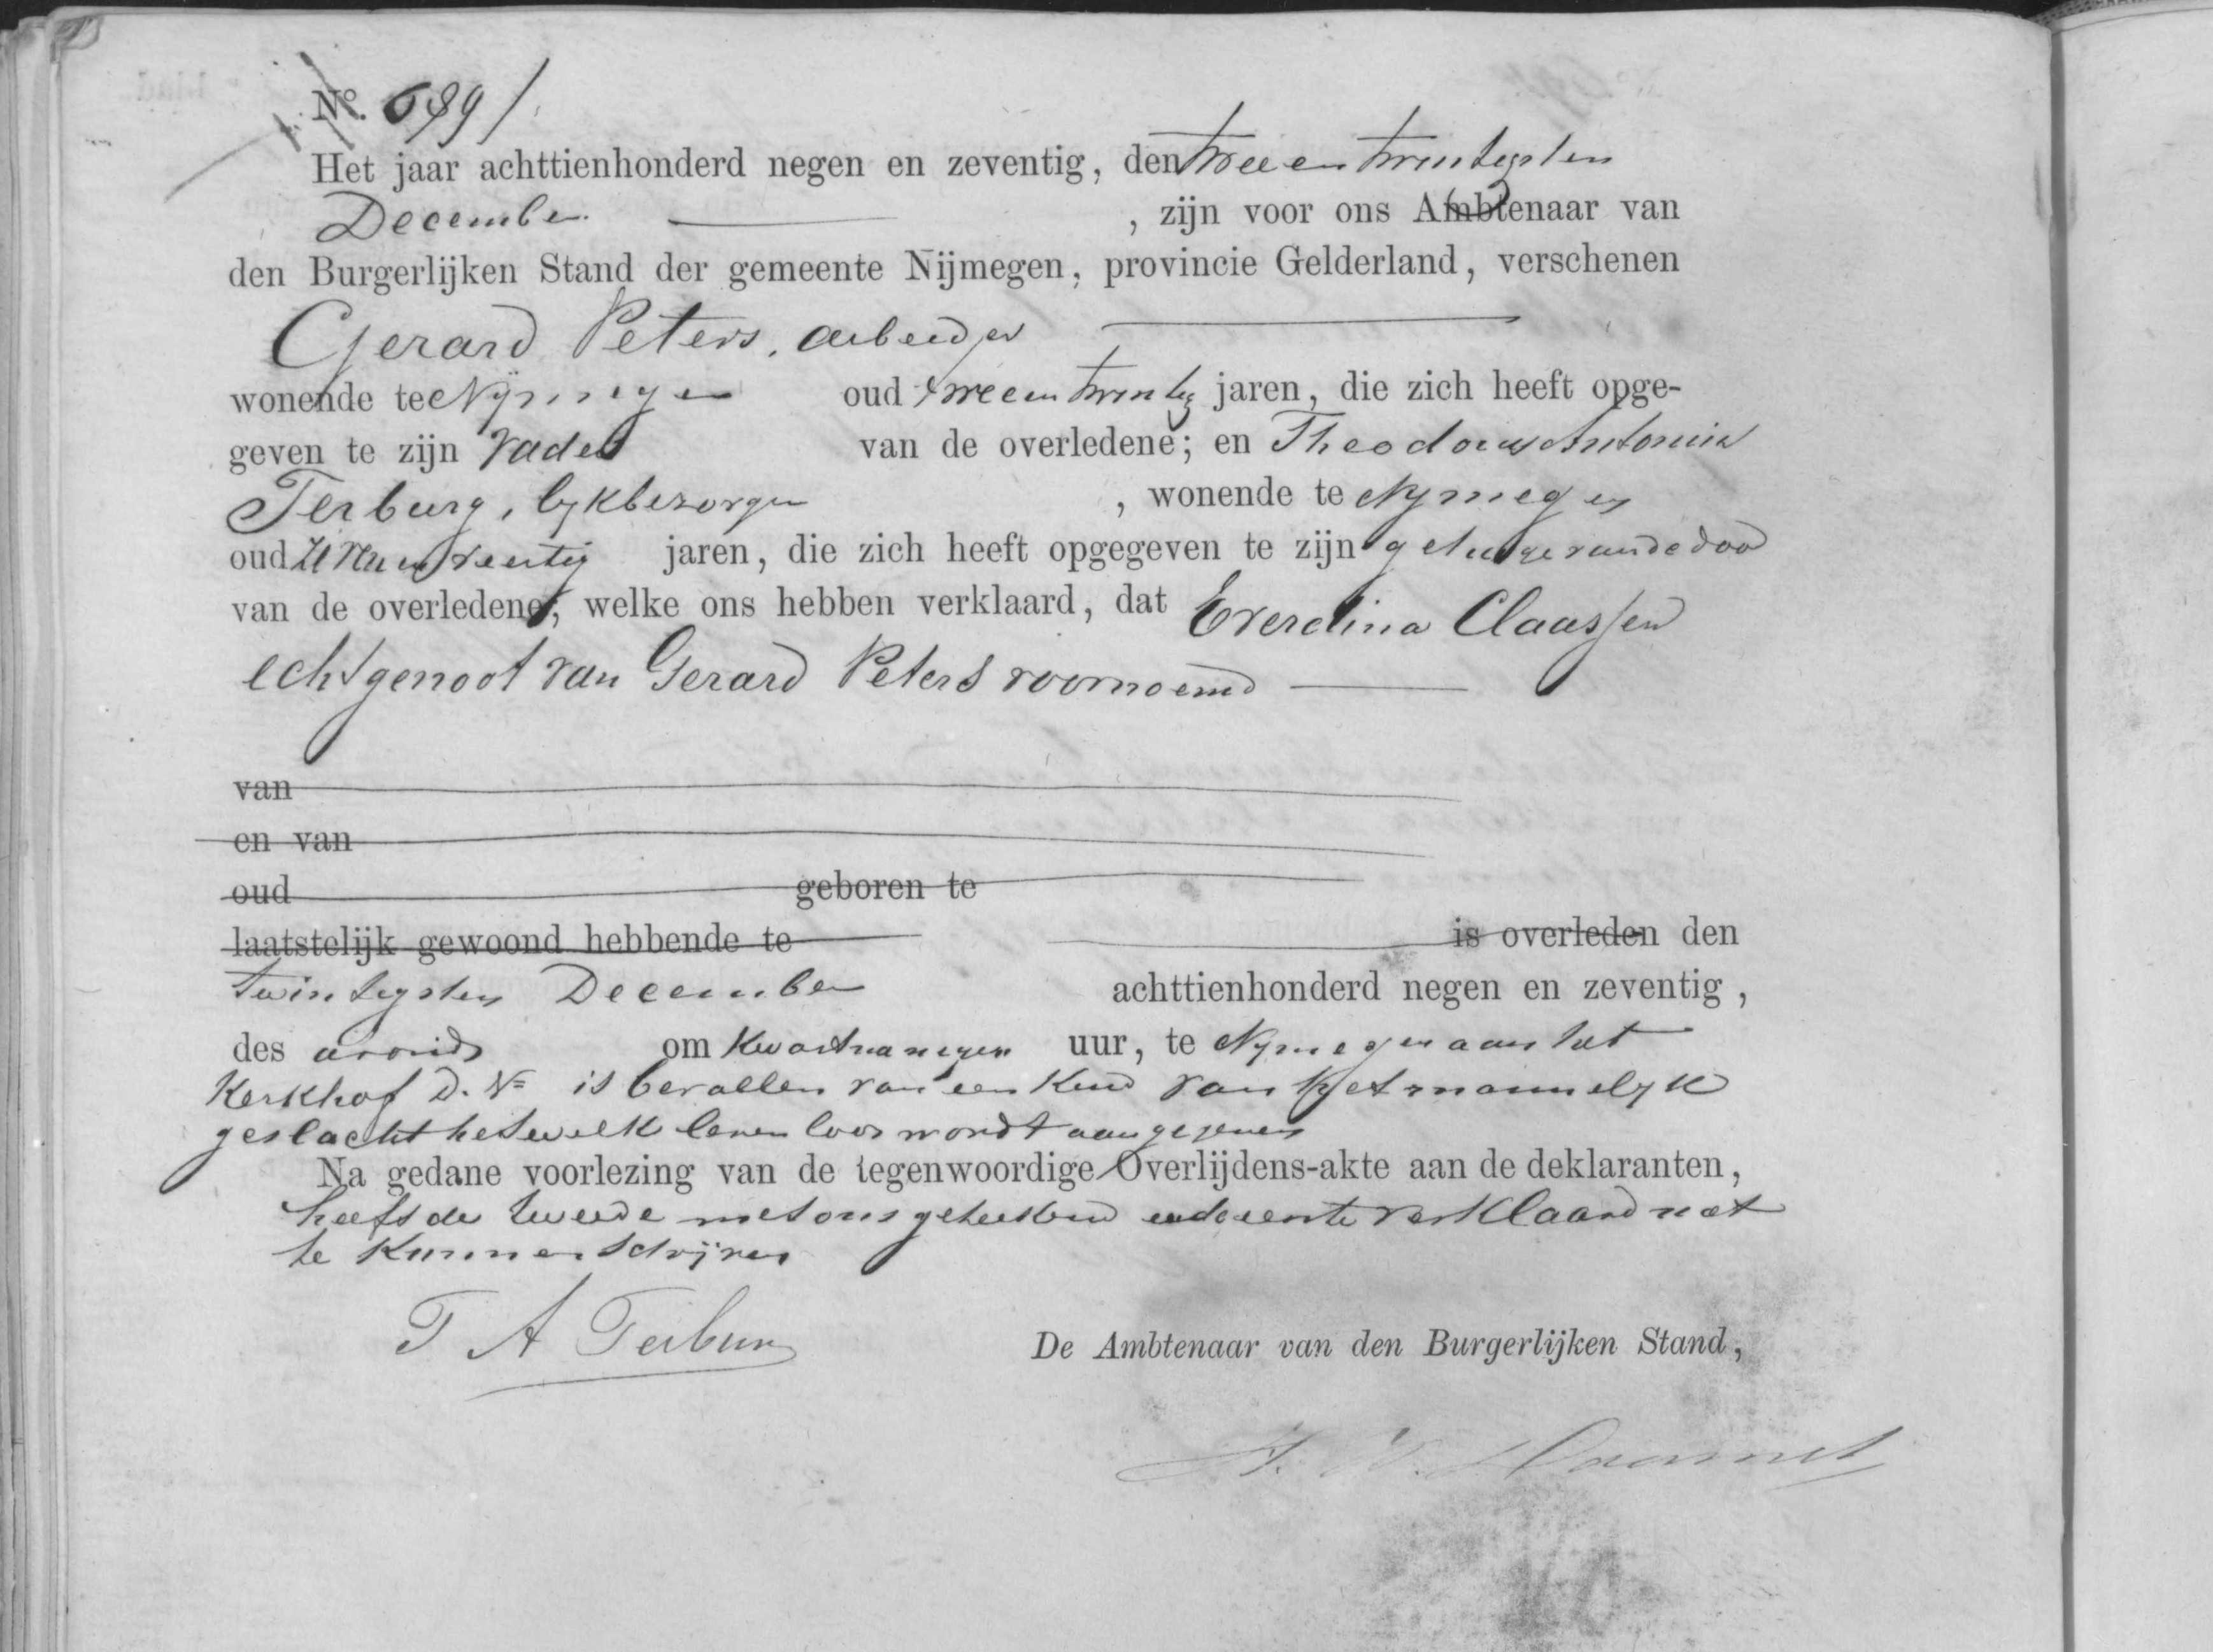 No. 689
Het jaar achttienhonderd negen en zeventig, den twee en twintigsten
December , zijn voor ons Ambtenaar van
den Burgerlijken Stand der gemeente Nijmegen, provincie Gelderland, verschenen
Gerard Peters, arbeider
wonende te Nijmegen oud twee en twintig jaren, die zich heeft opge-
geven te zijn vader van de overledene; en Theodorus Antonius
Terburg, lijkbezorger , wonende te Nijmegen
oud jaren, die zich heeft opgegeven te zijn getuige van de dood
van de overledene, welke ons hebben verklaard, dat Everdina Claassen
echtgenoot van Gerard Peters voornoemd
van
en van
oud geboren te
laatstelijk gewoond hebbende te is overleden den
twintigsten December achttienhonderd negen en zeventig,
des avonds om kwart na negen uur, te Nijmegen aan het
Kerkhof D. No is bevallen van een kind van het mannelijk
geslacht hetwelk levenloos wordt aangegeven
Na gedane voorlezing van de tegenwoordige Overlijdens-akte aan de deklaranten,
heeft de tweede met ons geteekend en de eerste verklaard niet
te kunnen schrijven
T A Terburg
De Ambtenaar van den Burgerlijken Stand,